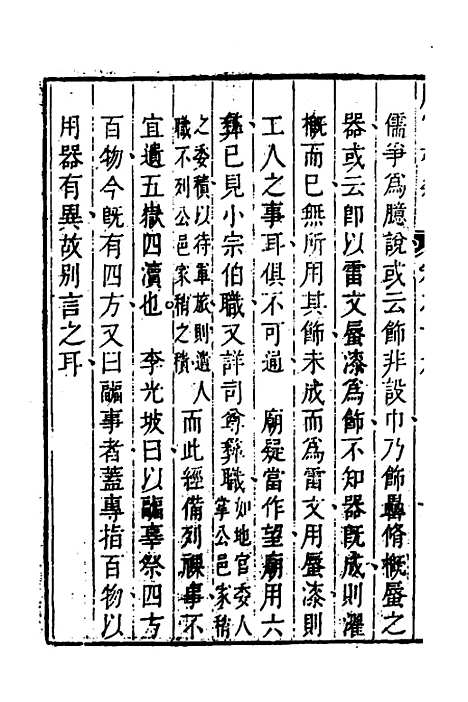 儒爭爲臆說或云飾非設巾乃飾彝脩概蜃之
器或云卽以雷文蜃漆爲飾不知器旣成則濯
概而已無所用其飾未成而爲雷文用蜃漆則
工人之事耳俱不可通　廟疑當作望廟用六
彝已見小宗伯職又詳司尊彝職如地官委人掌公邑家稍
之委積以待軍旅則遺人職不列公邑家稍之積而此經備列祼事不
宜遺五嶽四瀆也　李光坡曰以疈辜祭四方
百物今旣有四方又曰疈事者蓋專指百物以
用器有異故別言之耳